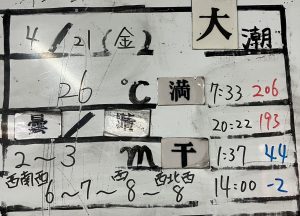 大潮
4/21(金)
26℃ 満 7:33 206
20:22 193
曇/晴
2~3m 干 1:37 44
西南西 西 西北西
6~7~8~8 14:00 -2